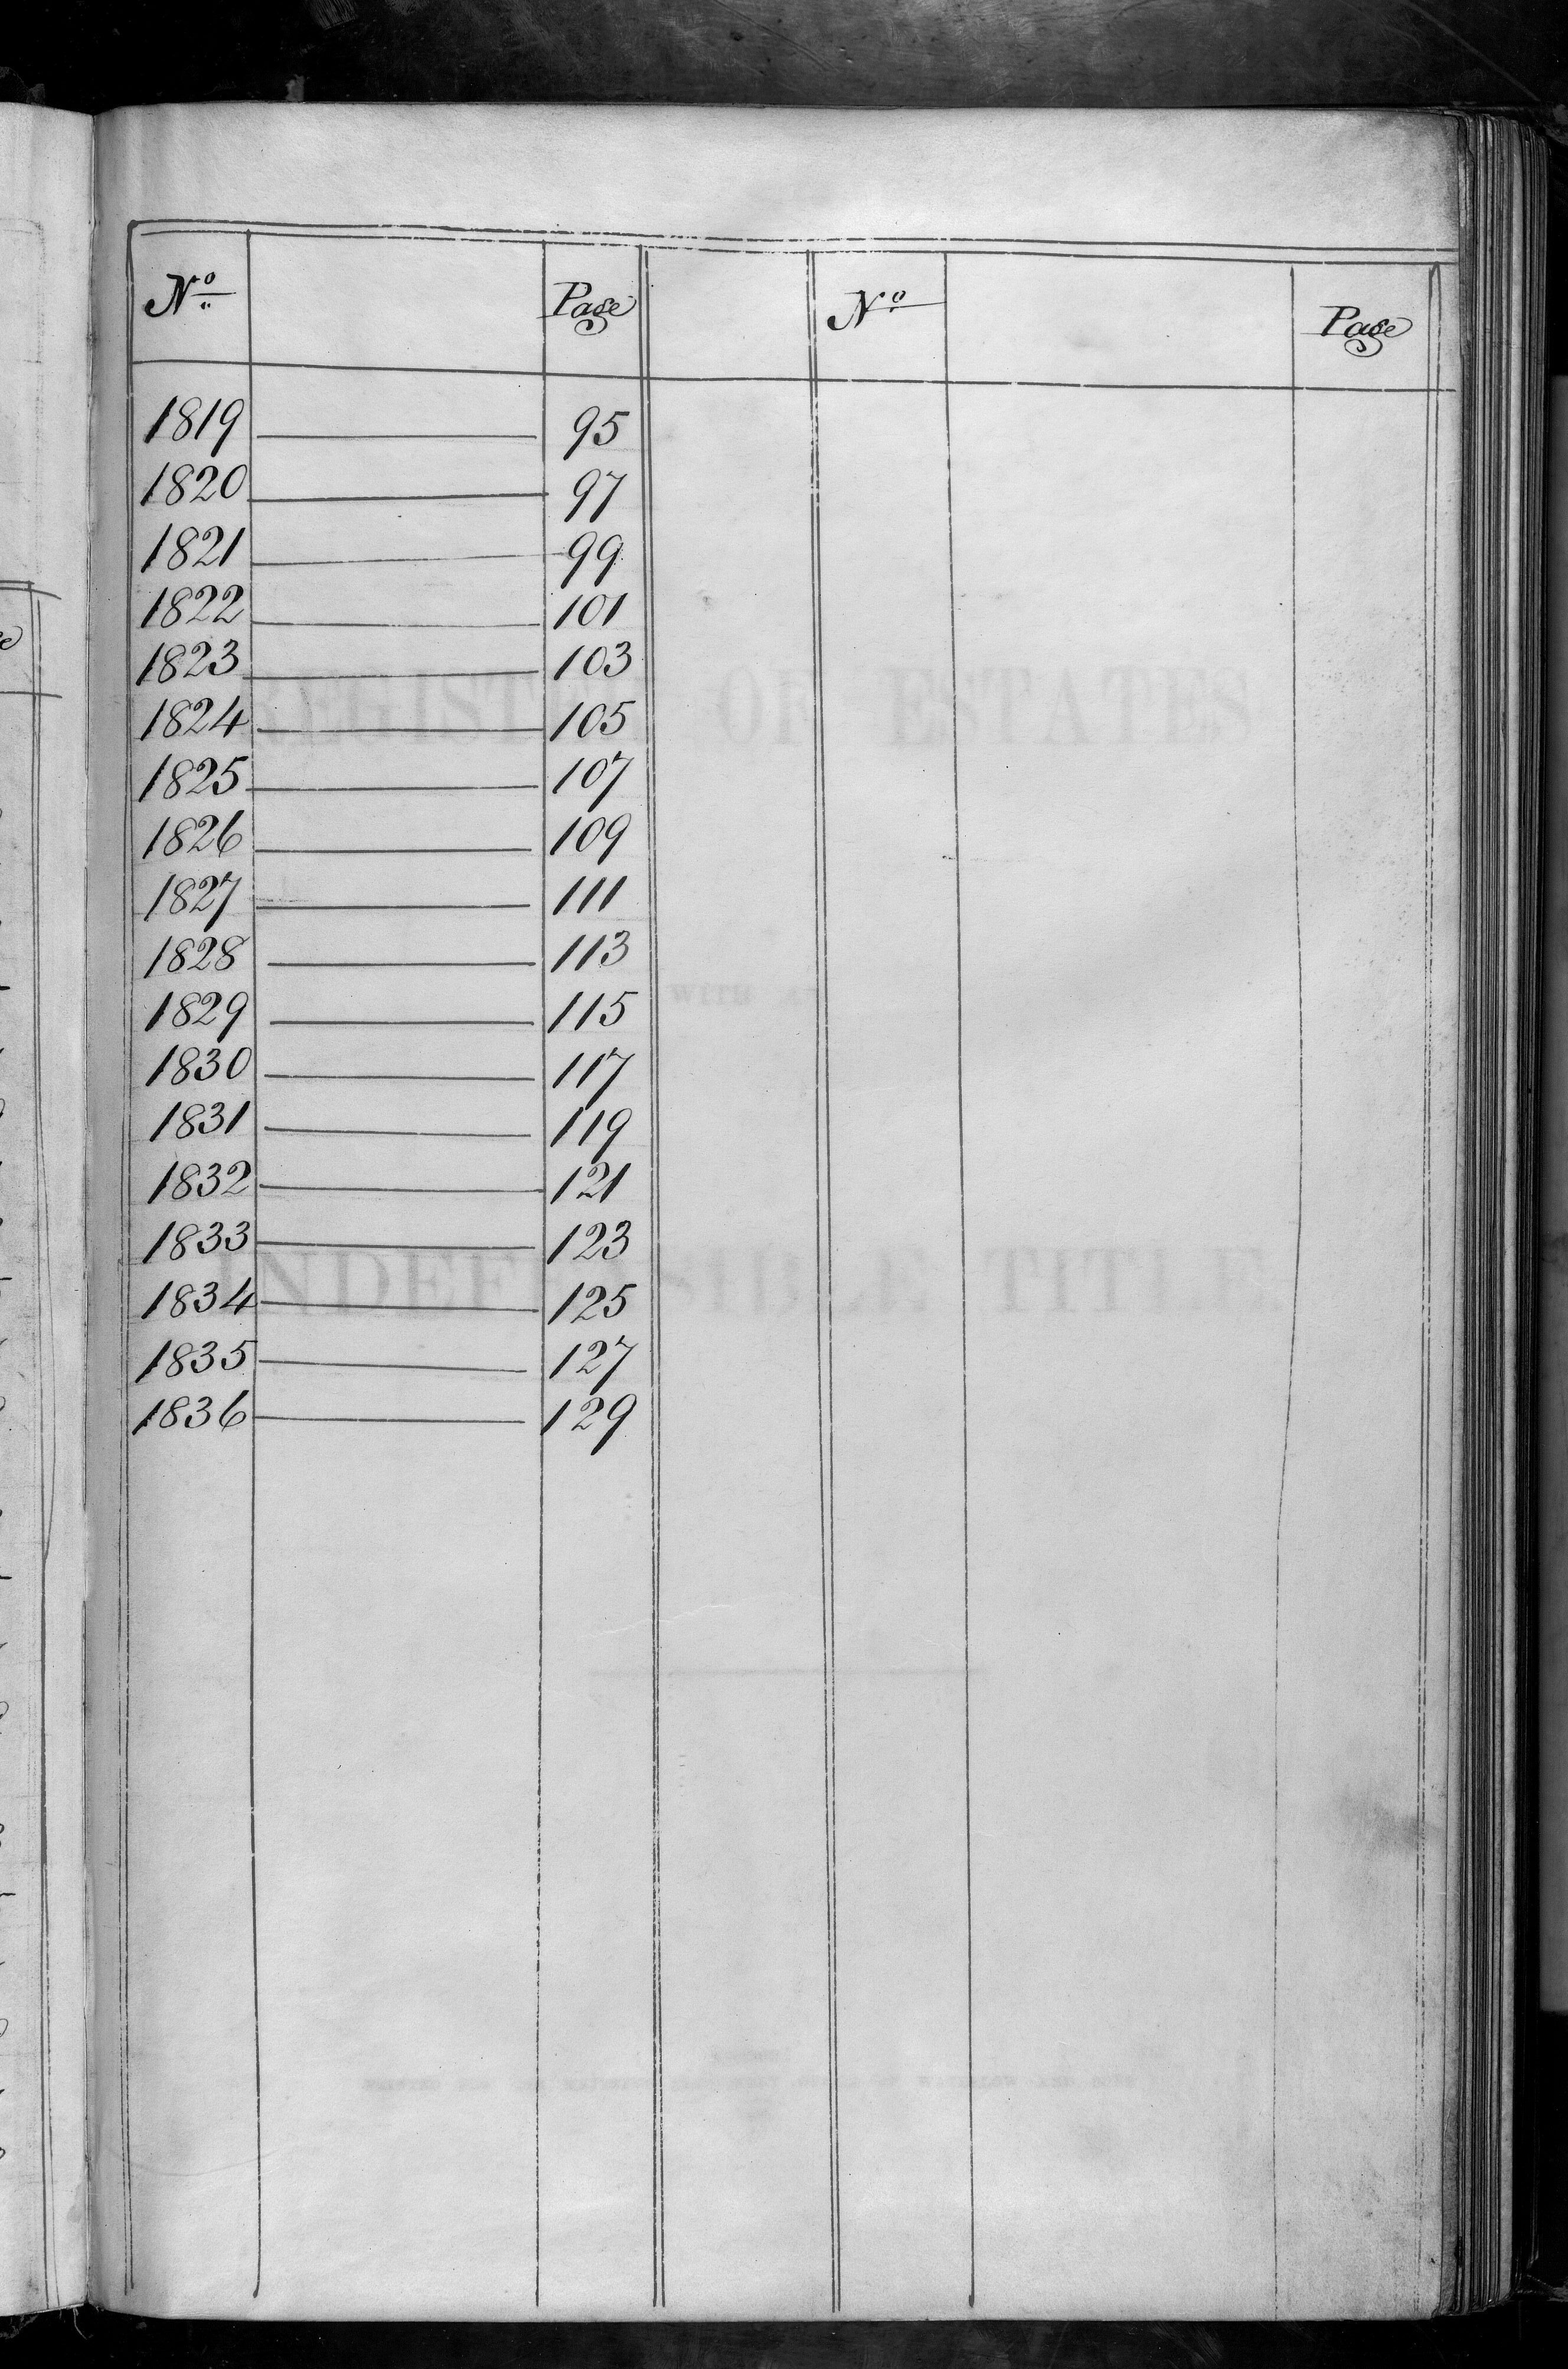 No Page No Page
1819 95
1820 97
1821 99
1822 101
1823 103
1824 105
1825 107
1826 109
1827 111
1828 113
1829 115
1830 117
1831 119
1832 121
1833 123
1834 125
1835 127
1836 129
REGISTER OF ESTATES
WITH AN
INDEFEASIBLE TITLE